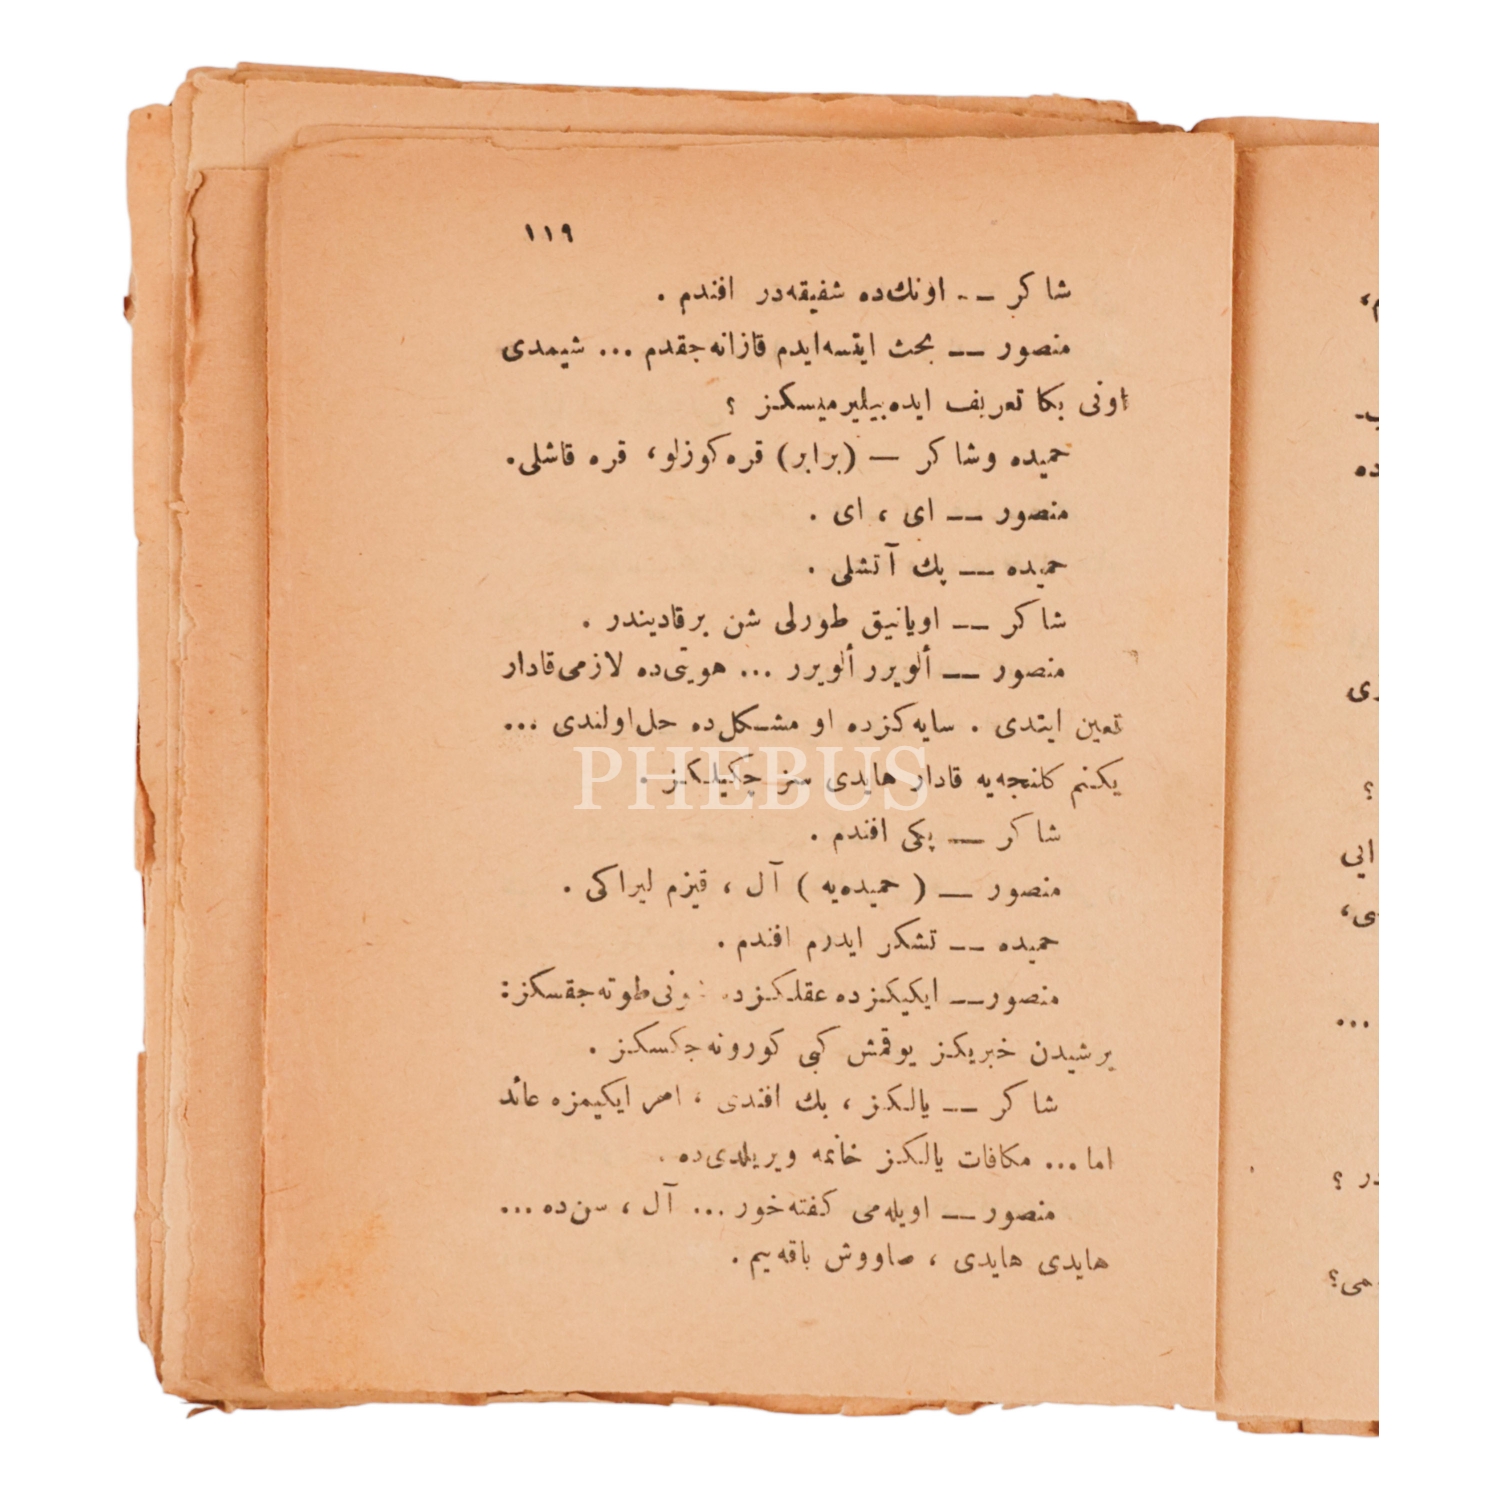 ١١٩
شاكر — اونك‌ده شفیقه‌در افندم .
منصور — بحث ایتسه‌ایدم قازانه‌جقدم ... شیمدی
اونی بكا تعریف ایده‌بیلیرمیسكز ؟
حمیده وشاكر — (برابر) قره‌كوزلو، قره قاشلی.
منصور — ای ، ای .
حمیده — پك آتشلی .
شاكر — اویانیق طورلی شن برقادیندر .
منصور — ألویرر ألویرر ... هویتی‌ده لازمی‌قادار
تعین ایتدی . سایه‌كزده او مشكل‌ده حل‌اولندی ...
یكنم كلنجه‌یه قادار هایدی سز چكیلكز .
PHEBUS
شاكر — پكی افندم .
منصور — ( حمیده‌یه ) آل ، قیزم لیراكی .
حمیده — تشكر ایدرم افندم .
منصور— ایكیكزده عقلكزده شونی‌طوته‌جقسكز :
برشیدن خبریكز یوقمش كبی كورونه‌جكسكز .
شاكر — یالكز ، بك افندی ، امر ایكیمزه عائد
اما ... مكافات یالكز خانمه ویریلدی‌ده .
منصور — اویله‌می كفته‌خور ... آل ، سن‌ده ...
هایدی هایدی ، صاووش باقه‌یم .